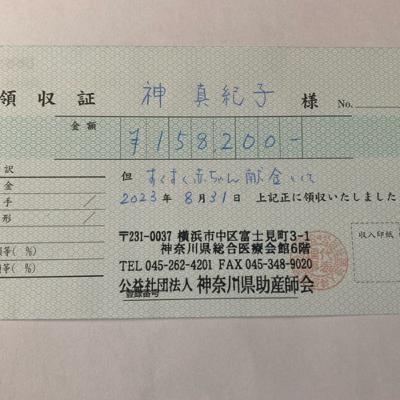 領収証 神 真紀子 様 No.
金額 ¥158,200-
訳 但 すくすく赤ちゃん献金として
金 2023年 8月31日 上記正に領収いたしました
手
形
額等( %)
額等( %)
収入印紙
〒231-0037 横浜市中区富士見町3-1
神奈川県総合医療会館6階
TEL 045-262-4201 FAX 045-348-9020
公益社団法人 神奈川県助産師会
登録番号